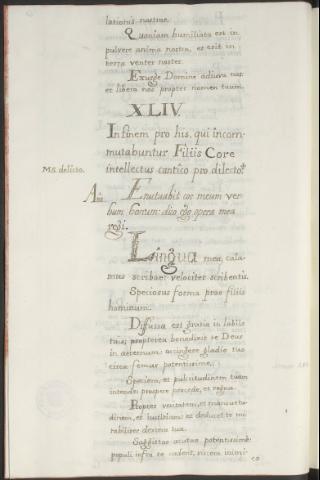 lationis nostrae.
Quoniam humiliata est in
pulvere anima nostra, et est in
terra venter noster.
Exurge Domine adiuva nos
et libera nos propter nomen tuum.
XLIV.
In finem pro his, qui incom-
mutabuntur Filiis Core
intellectus cantico pro dilecto.
Ms. delicto.
Eructuabit cor meum ver-
bum bonum: dico ego opera mea
regi.
Lingua mea, cala-
mus scribae velociter scribentis.
Speciosus forma prae filiis
hominum.
Diffussa est gratia in labiis
tuis, propterea benedixit te Deus
in aeternum: accingere gladio tuo
circa femur potentissime.
Speciem, et pulcritudinem tuam
intende prospere procede, et regna.
Propter veritatem, et mansuetu-
dinem, et iustitiam: et deducet te mi-
rabiliter dextera tua.
Saggittae acutae potentissime
populi infra te cadent, in corda inimi-
co